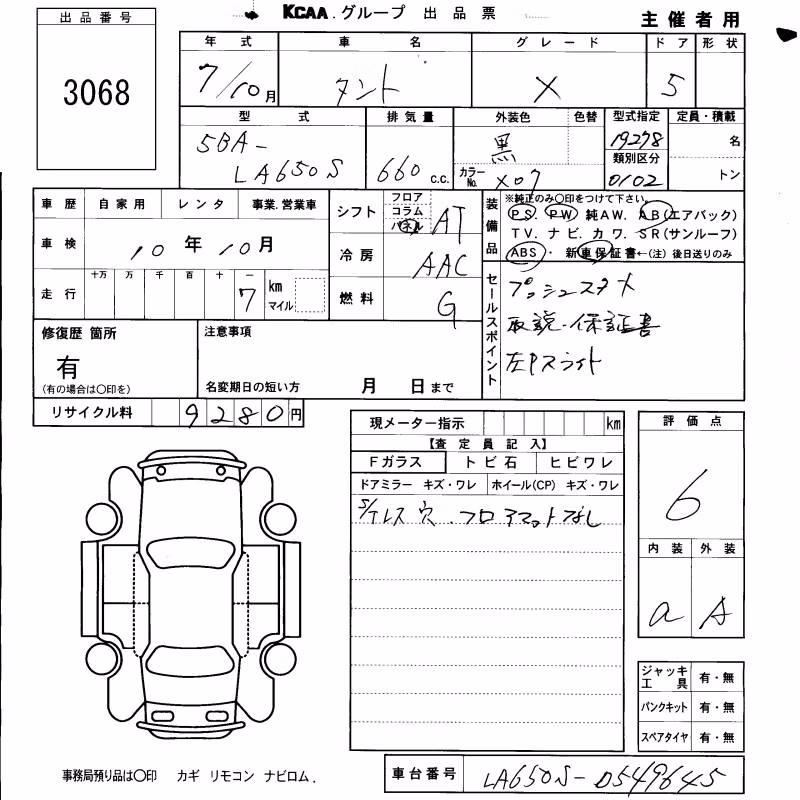 出品番号
3068
KCAA.グループ 出品票
主催者用
年式 車名 グレード ドア 形状
7/10月 タント X 5
型式 排気量 外装色 色替 型式指定 定員・積載
5BA-
LA650S
660 c.c.
黒
カラーNo. X07
19278
類別区分
0102
名
トン
車歴 自家用 レンタ 事業.営業車
車検 10年10月
走行 十万 万 千 百 十 一
7 km マイル
シフト フロア コラム パネル AT
冷房 AAC
燃料 G
装備品
※純正のみ〇印をつけて下さい。
PS. PW 純AW. AB(エアバック)
TV. ナビ. カワ. SR(サンルーフ)
ABS ・ 新車保証書←(注)後日送りのみ
セールスポイント
プッシュスタート
取説・保証書
左Pスライド
修復歴 箇所
有
(有の場合は〇印を)
注意事項
名変期日の短い方 月 日まで
リサイクル料 9280円
現メーター指示 km
【査定員記入】
Fガラス トビ石 ヒビワレ
ドアミラー キズ・ワレ ホイール(CP) キズ・ワレ
S/テレス 穴. フロアマットなし
評価点
6
内装 外装
a A
ジャッキ工具 有・無
パンクキット 有・無
スペアタイヤ 有・無
事務局預り品は〇印 カギ リモコン ナビロム.
車台番号 LA650S-0549645